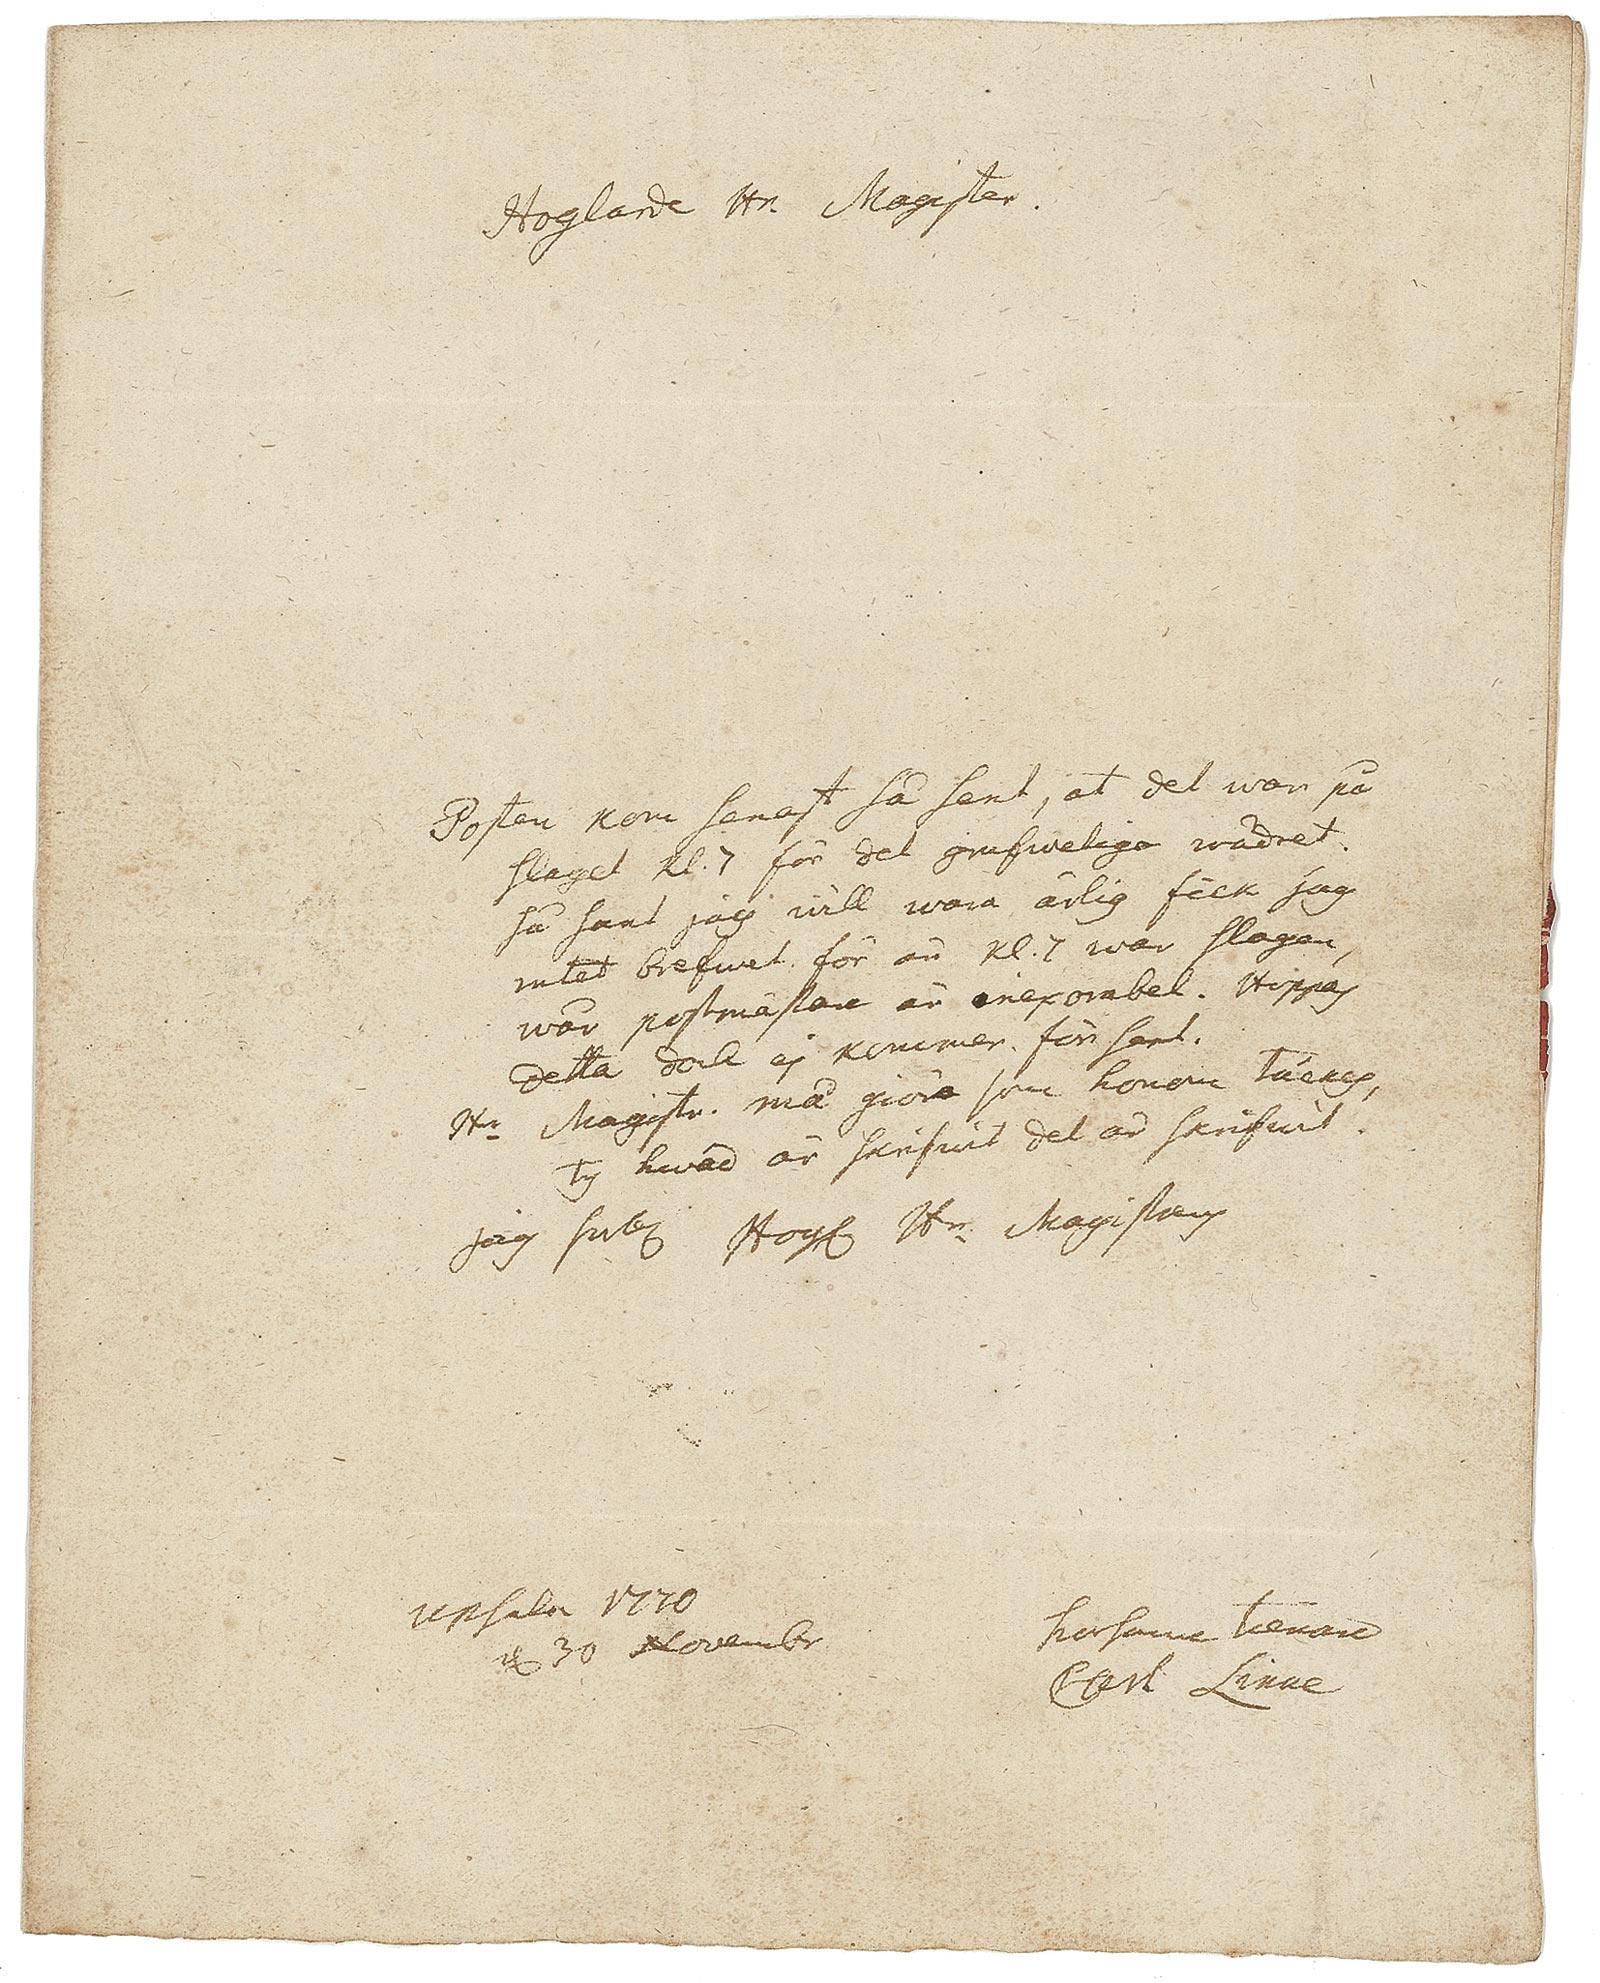 Höglärde Hr. Magister.
Posten kom senast så sent, at det war på
slaget kl. 7 för det grufweliga wädret.
så sant jag will wara ärlig feck jag
intet brefwet för än kl. 7 war slagen,
wår postmästare är inexorabel. Hoppas
detta dock ej kommer för sent.
Hr Magistr. må giöra som honom täckes,
ty hwad är skrifwit det är skrifwit.
jag Hr Magisters
Upsala 1770
d 30 Novembr
hörsamme tienare
Carl Linne